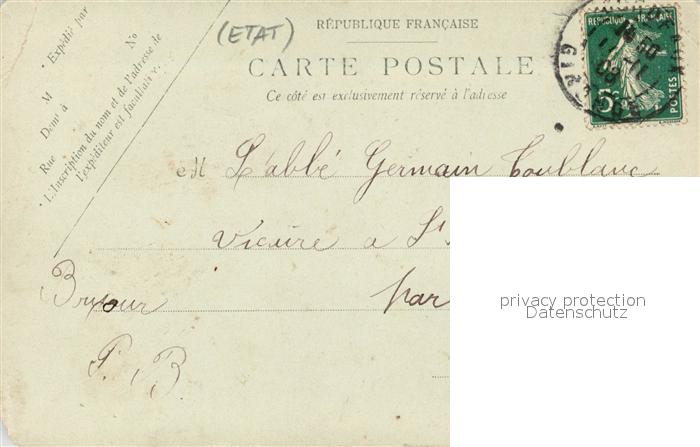 (ETAT)
RÉPUBLIQUE FRANÇAISE
CARTE POSTALE
Ce côté est exclusivement réservé à l'adresse
Expédié par
M
No
Demt à
Rue
L'Inscription du nom et de l'adresse de
l'expéditeur est facultati
RÉPUBLIQUE FRANÇAISE
5c
POSTES
M L'abbé Germain Toublanc
Vicaire a St
par
Bonjour
P. B.
privacy protection
Datenschutz